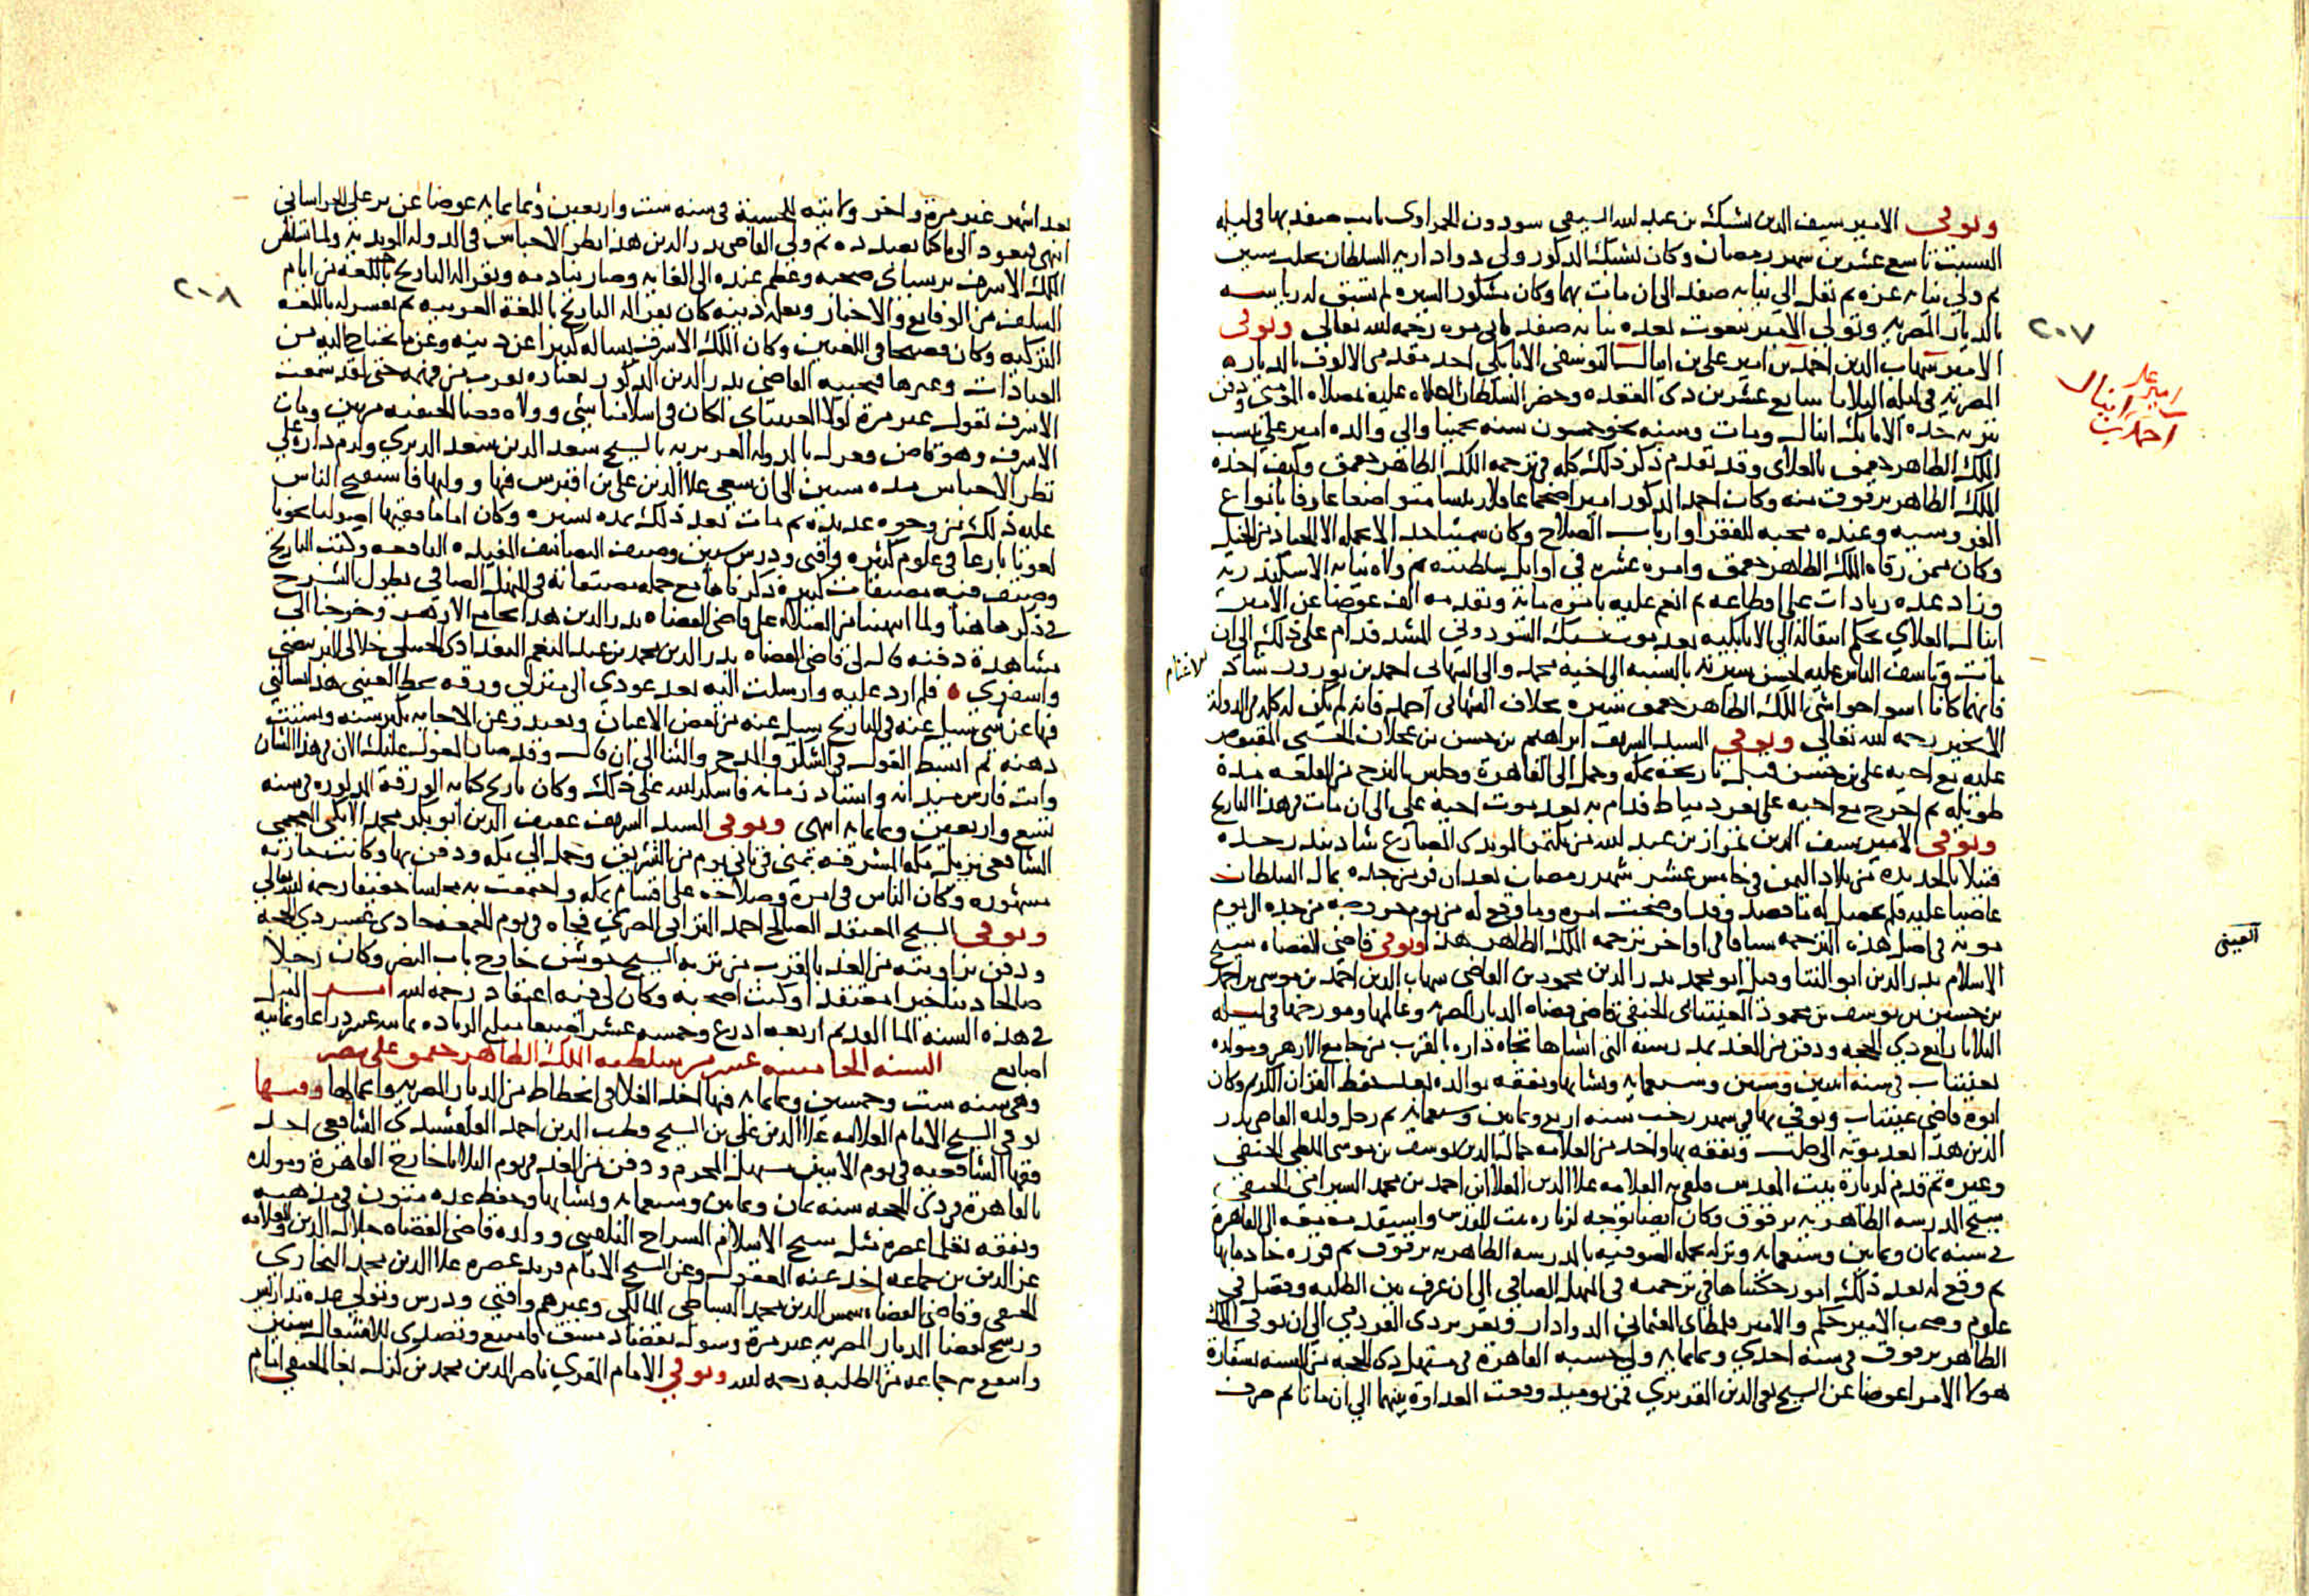 وتوفي الامير سيف الدين يشبك بن عبد الله السيفي سودون الحمزاوي نايب صفد بها في ليلة
السبت تاسع عشرين شهر رمضان وكان يشبك المذكور ولي دوادارية السلطان بحلب سنين
ثم ولي نيابة غزة ثم نقل الي نيابة صفد الى ان مات بها وكان مشكور السيرة لم تسبق له رياسة
بالديار المصرية وتولى الامير بيغوت بعده نيابة صفد ثاني مرة رحمه الله تعالى وتوفى
٢٠٧
الامير شهاب الدين احمد بن امير علي بن اينال اليوسفي الاتابكي احد مقدمي الالوف بالديار
امير على
اينال
احمد بن
المصرية في ليلة الثلاثا سابع عشرين ذي القعدة وحضر السلطان الصلاة عليه بمصلاة المؤمني ودفن
بتربة جده الاتابك اينال ومات وسنه نحو خمسون سنة تخمينا والي والده امير علي ينسب
الملك الظاهر جقمق بالعلاي وقد تقدم ذكر ذلك كله في ترجمة الملك الظاهر جقمق وكيف اخذه
الملك الظاهر برقوق منه وكان احمد المذكور اميرا ضخما عاقلا رييسا متواضعا عارفا بانواع
الفروسية وعنده محبة للفقرا وارباب الصلاح وكان سمينا جدا لا يحمله الا الجياد من الخيل
وكان ممن رقاه الملك الظاهر جقمق وامره عشرة في اوايل سلطنته ثم ولاه نيابة الاسكندرية
وزاد عدة زيادات على اقطاعه ثم انعم عليه بامرة ماية وتقدمة الف عوضا عن الامير
اينال العلاي بحكم انتقاله الي الاتابكية بعد موت يشبك السودوني المشد فدام على ذلك الى ان
مات وتاسف الناس عليه لحسن سيرته بالنسبة الى اخيه محمد والى الشهابي احمد بن نوروز شاد
الاغنام
فانهما كانا اسوا حواشي الملك الظاهر جقمق سيرة بخلاف الشهابي احمد فانه لم يكن له كلمة في الدولة
الا بخير رحمه الله تعالى وتوفي السيد الشريف ابراهيم بن حسن بن عجلان الحسني المقبوض
عليه مع اخيه علي بن حسن قبل تاريخه بمكة وحمل الى القاهرة وحبس بالبرج من القلعة مدة
طويلة ثم اخرج مع اخيه علي لثغر دمياط فدام به بعد موت اخيه علي الى ان مات في هذا التاريخ
وتوفي الامير سيف الدين تمراز بن عبد الله من بكتمر المويدي المصارع شاد بندر جدة
قتيلا بالحديدة من بلاد اليمن في خامس عشر شهر رمضان بعد ان فر من جدة بمال السلطان
عاصيا عليه فلم يحصل له ما قصد وقد اوضحت امره وما وقع له من يوم خروجه من جدة الى يوم
موته في اصل هذه الترجمة سياقا في اواخر ترجمة الملك الظاهر هذا وتوفي قاضي القضاة شيخ
العيني
الاسلام بدر الدين ابو الثنا وقيل ابو محمد بدر الدين محمود بن القاضي شهاب الدين احمد بن موسى بن احمد
بن حسين بن يوسف بن محمود العينتابي الحنفي قاضي قضاة الديار المصرية وعالمها ومورخها في ليلة
الثلاثا رابع ذي الحجة ودفن من الغد بمدرسته التي انشاها تجاه داره بالقرب من جامع الازهر ومولده
بعينتاب في سنة اثنين وستين وسبعماية ونشا بها وتفقه بوالده بعد حفظ القران الكريم وكان
ابوه قاضي عينتاب وتوفي بها في شهر رجب سنة اربع وثمانين وسبعماية ثم رحل ولده القاضي بدر
الدين هذا بعد موته الى حلب وتفقه بها واخذ من العلامة جمال الدين يوسف بن موسى الملطي الحنفي
وغيره ثم قدم لزيارة بيت المقدس فلقي به العلامة علا الدين العلا ابن احمد بن محمد السيرامي الحنفي
شيخ المدرسة الظاهرية برقوق وكان ايضا توجه لزيارة بيت المقدس واستقدمه معه الى القاهرة
في سنة ثمان وثمانين وسبعماية ونزله بجملة الصوفية بالمدرسة الظاهرية برقوق ثم قرره خادما بها
ثم وقع له بعد ذلك امور حكيناها في ترجمته في المنهل الصافي الى ان عرف بين الطلبة وفضل في
علوم وصحب الامير جكم والامير قلمطاى العثماني الدوادار وتغري بردي القردمي الى ان توفي الملك
الظاهر برقوق في سنة احدى وثمانماية ولي حسبة القاهرة في مستهل ذي الحجة من السنة بسفارة
هولا الامرا عوضا عن الشيخ تقي الدين المقريزي فمن يوميد وقعت العداوة بينهما الى ان ماتا ثم صرف
بعد اشهر غير مرة واخر ولايته للحسبة في سنة ست واربعين وثمانماية عوضا عن يرعلي الخراساني
انتهى ونعود الى ما كنا بصدده ثم ولي القاضي بدر الدين هذا نظر الاحباس في الدولة المويدية ولما تسلطن
الملك الاشرف برسباي صحبه وعظم عنده الى الغاية وصار ينادمه ويقرا له التاريخ باللغة من ايام
٢٠٨
السلف من الوقايع والاخبار ويعلمه دينه كان يقرا له التاريخ باللغة العربية ثم يفسر له باللغة
التركية وكان فصيحا في اللغتين وكان الملك الاشرف يساله كثيرا عن دينه وعن ما يحتاج اليه من
العبادات وغيرها فيجيبه القاضي بدر الدين المذكور بعبارة تقرب من فهمه حتى لقد سمعت
الاشرف يقول غير مرة لولا العينتابي لكان في اسلامنا شي وولاه قضا الحنفية مرتين ومات
الاشرف وهو قاض وعزل بالدولة العزيزية بالشيخ سعد الدين سعد الديري ولزم داره على
نظر الاحباس مدة سنين الى ان سعى علا الدين علي بن اقبرس فيها ووليها فاستقبح الناس
عليه ذلك من وجوه عديدة ثم مات بعد ذلك بمدة يسيرة وكان اماما فقيها اصوليا نحويا
لغويا بارعا في علوم كثيرة وافتى ودرس سنين وصنف التصانيف المفيدة النافعة وكتب التاريخ
وصنف فيه مصنفات كثيرة ذكرناها مع جملة مصنفاته في المنهل الصافي يطول الشرح
في ذكرها هنا ولما انتهينا من الصلاة على قاضي القضاة بدر الدين هذا بجامع الازهر وخرجنا الى
مشاهدة دفنه قال لي قاضي القضاة بدر الدين محمد بن عبد المنعم البغدادي الحنبلي خلا لك البر فبيضي
واصفري ۰ فلم ارد عليه وارسلت اليه بعد عودي الى منزلي ورقة بخط العيني هذا يسالني
فيها عن شي سيل عنه في التاريخ سيل عنه من بعض الاعيان ويعتذر عن الاجابة بكبر سنه وتشتت
ذهنه ثم ابسط القول في الشكر والمدح والثنا الى ان قال وقد صار المعول عليك الان في هذا الشان
وانت فارس ميدانه واستاد زمانه فاشكر الله على ذلك وكان تاريخ كتابة الورقة المذكورة في سنة
تسع واربعين وثمانماية انتهى وتوفي السيد الشريف عفيف الدين ابو بكر محمد الايكي العجمي
الشافعي نزيل مكة المشرفة بمنى في ثاني يوم من التشريق وحمل الى مكة ودفن بها وكانت جنازته
مشهورة وكان الناس في امره وصلاحه على اقسام بمكة واجتمعت به مجلسا خفيفا رحمه الله تعالى
وتوفي الشيخ المعتقد الصالح احمد الترابي المصري فجاة في يوم الجمعة حادي عشر ذي الحجة
ودفن بزاويته من الغد بالقرب من تربة الشيخ جوشن خارج باب النصر وكان رجلا
صالحا دينا خيرا معتقدا وكنت اصحبه وكان لي فيه اعتقاد رحمه الله امر النيل
في هذه السنة الما القديم اربعة اذرع وخمسة عشر اصبعا مبلغ الزيادة ثمانية عشر ذراعا وثمانية
اصابع السنة الخامسة عشر من سلطنة الملك الظاهر جقمق على مصر
وهي سنة ست وخمسين وثمانماية فيها اخذ الغلا في انحطاط من الديار المصرية واعمالها وفيها
توفي الشيخ الامام العلامة علا الدين علي بن الشيخ قطب الدين احمد القلقشندي الشافعي احد
فقها الشافعية في يوم الاثنين مستهل المحرم ودفن من الغد في يوم الثلاثا خارج القاهرة ومولده
بالقاهرة في ذي الحجة سنة ثمان وثمانين وسبعماية ونشا بها وحفظ عدة متون في مذهبه
وتفقه بعلما عصره مثل شيخ الاسلام السراج البلقيني وولده قاضي القضاة جلال الدين والعلامة
عز الدين بن جماعة اخذ عنه المعقول وعن الشيخ الامام فريد عصره علا الدين محمد البخاري
الحنفي وقاضي القضاة شمس الدين محمد البساطي المالكي وغيرهم وافتى ودرس وتولى عدة تداريس
ورشح لقضا الديار المصرية غير مرة وسول بقضا دمشق فامتنع وتصدى للاشتغال سنين
وانتفع به جماعة من الطلبة رحمه الله وتوفي الامام المقري ناصر الدين محمد بن كزل بغا الحنفي امام